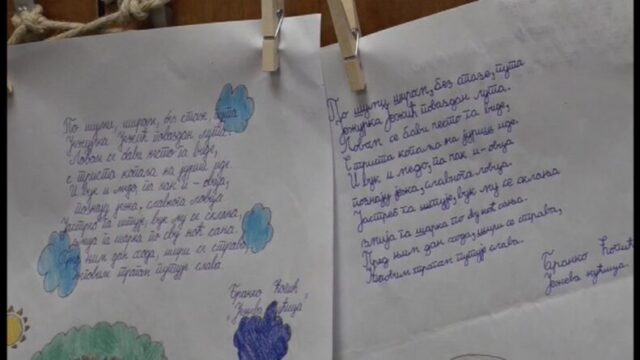 По шуми, широм, без стаза, пута
Јежурка Јежић поваздан лута.
Ловом се бави често га виде,
с триста копаља на јуриш иде.
И вук и медо, па чак и – овца
познају јежа, славнога ловца.
Јастреб га штује, вук му се склања,
змија га шарка по сву ноћ сања.
Пред њим дан хода, шири се страва,
његовим трагом путује слава.
Бранко Ћопић
„Јежева кућица"
По шуми, широм, без стазе, пута
Јежурка Јежић поваздан лута.
Ловом се бави често га виде,
с триста копаља на јуриш иде.
И вук и медо, па чак и – овца
познају јежа, славнога ловца.
Јастреб га штује, вук му се склања
змија га шарка по сву ноћ сања.
Пред њим дан хода, шири се страва,
његовим трагом путује слава.
Бранко Ћопић
Јежева кућица.